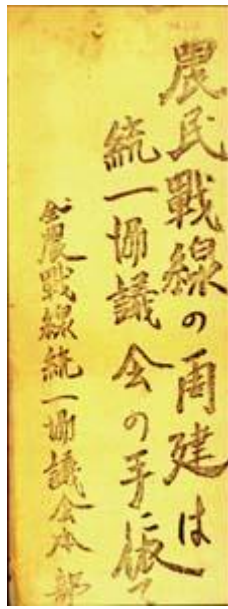 農民戰線の再建は
統一協議会の手に依て
全農戰線統一協議会本部